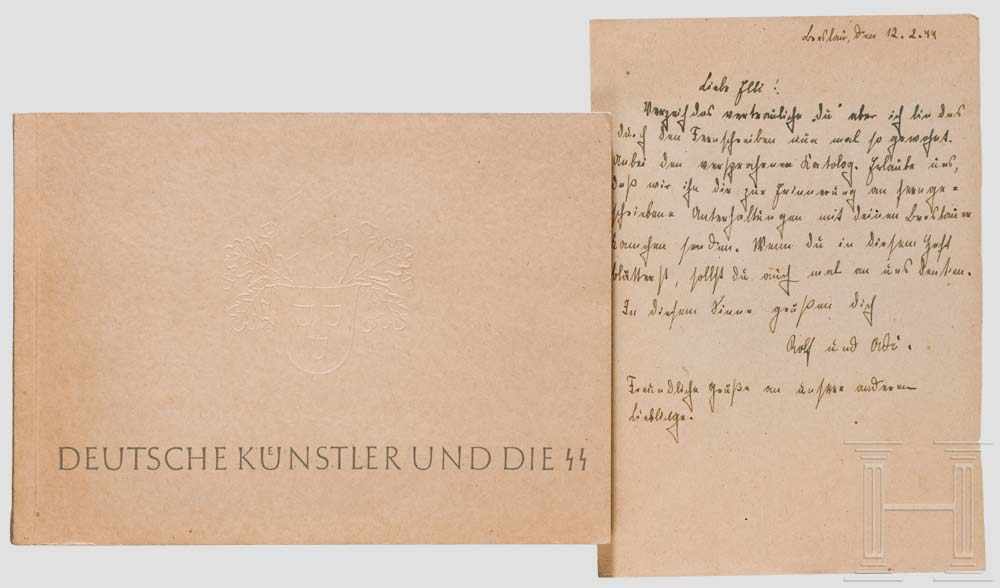 DEUTSCHE KÜNSTLER UND DIE SS
Breslau, den 12.2.44
Liebe Illi!
Verzeih das vertrauliche „du" aber ich bin das
durch den Fernschreiben nun mal so gewohnt.
Anbei den versprochenen Katolog. Erlaube uns,
daß wir ihn dir zur Erinnerung an fernge-
schriebene Unterhaltungen mit deinen Breslauer
senden. Wenn du in diesem Heft
blätterst, sollst du auch mal an uns denken.
In diesem Sinne grüßen dich
Rolf und Adi.
Freundliche Grüße an unsere anderen
Lieblinge.
H